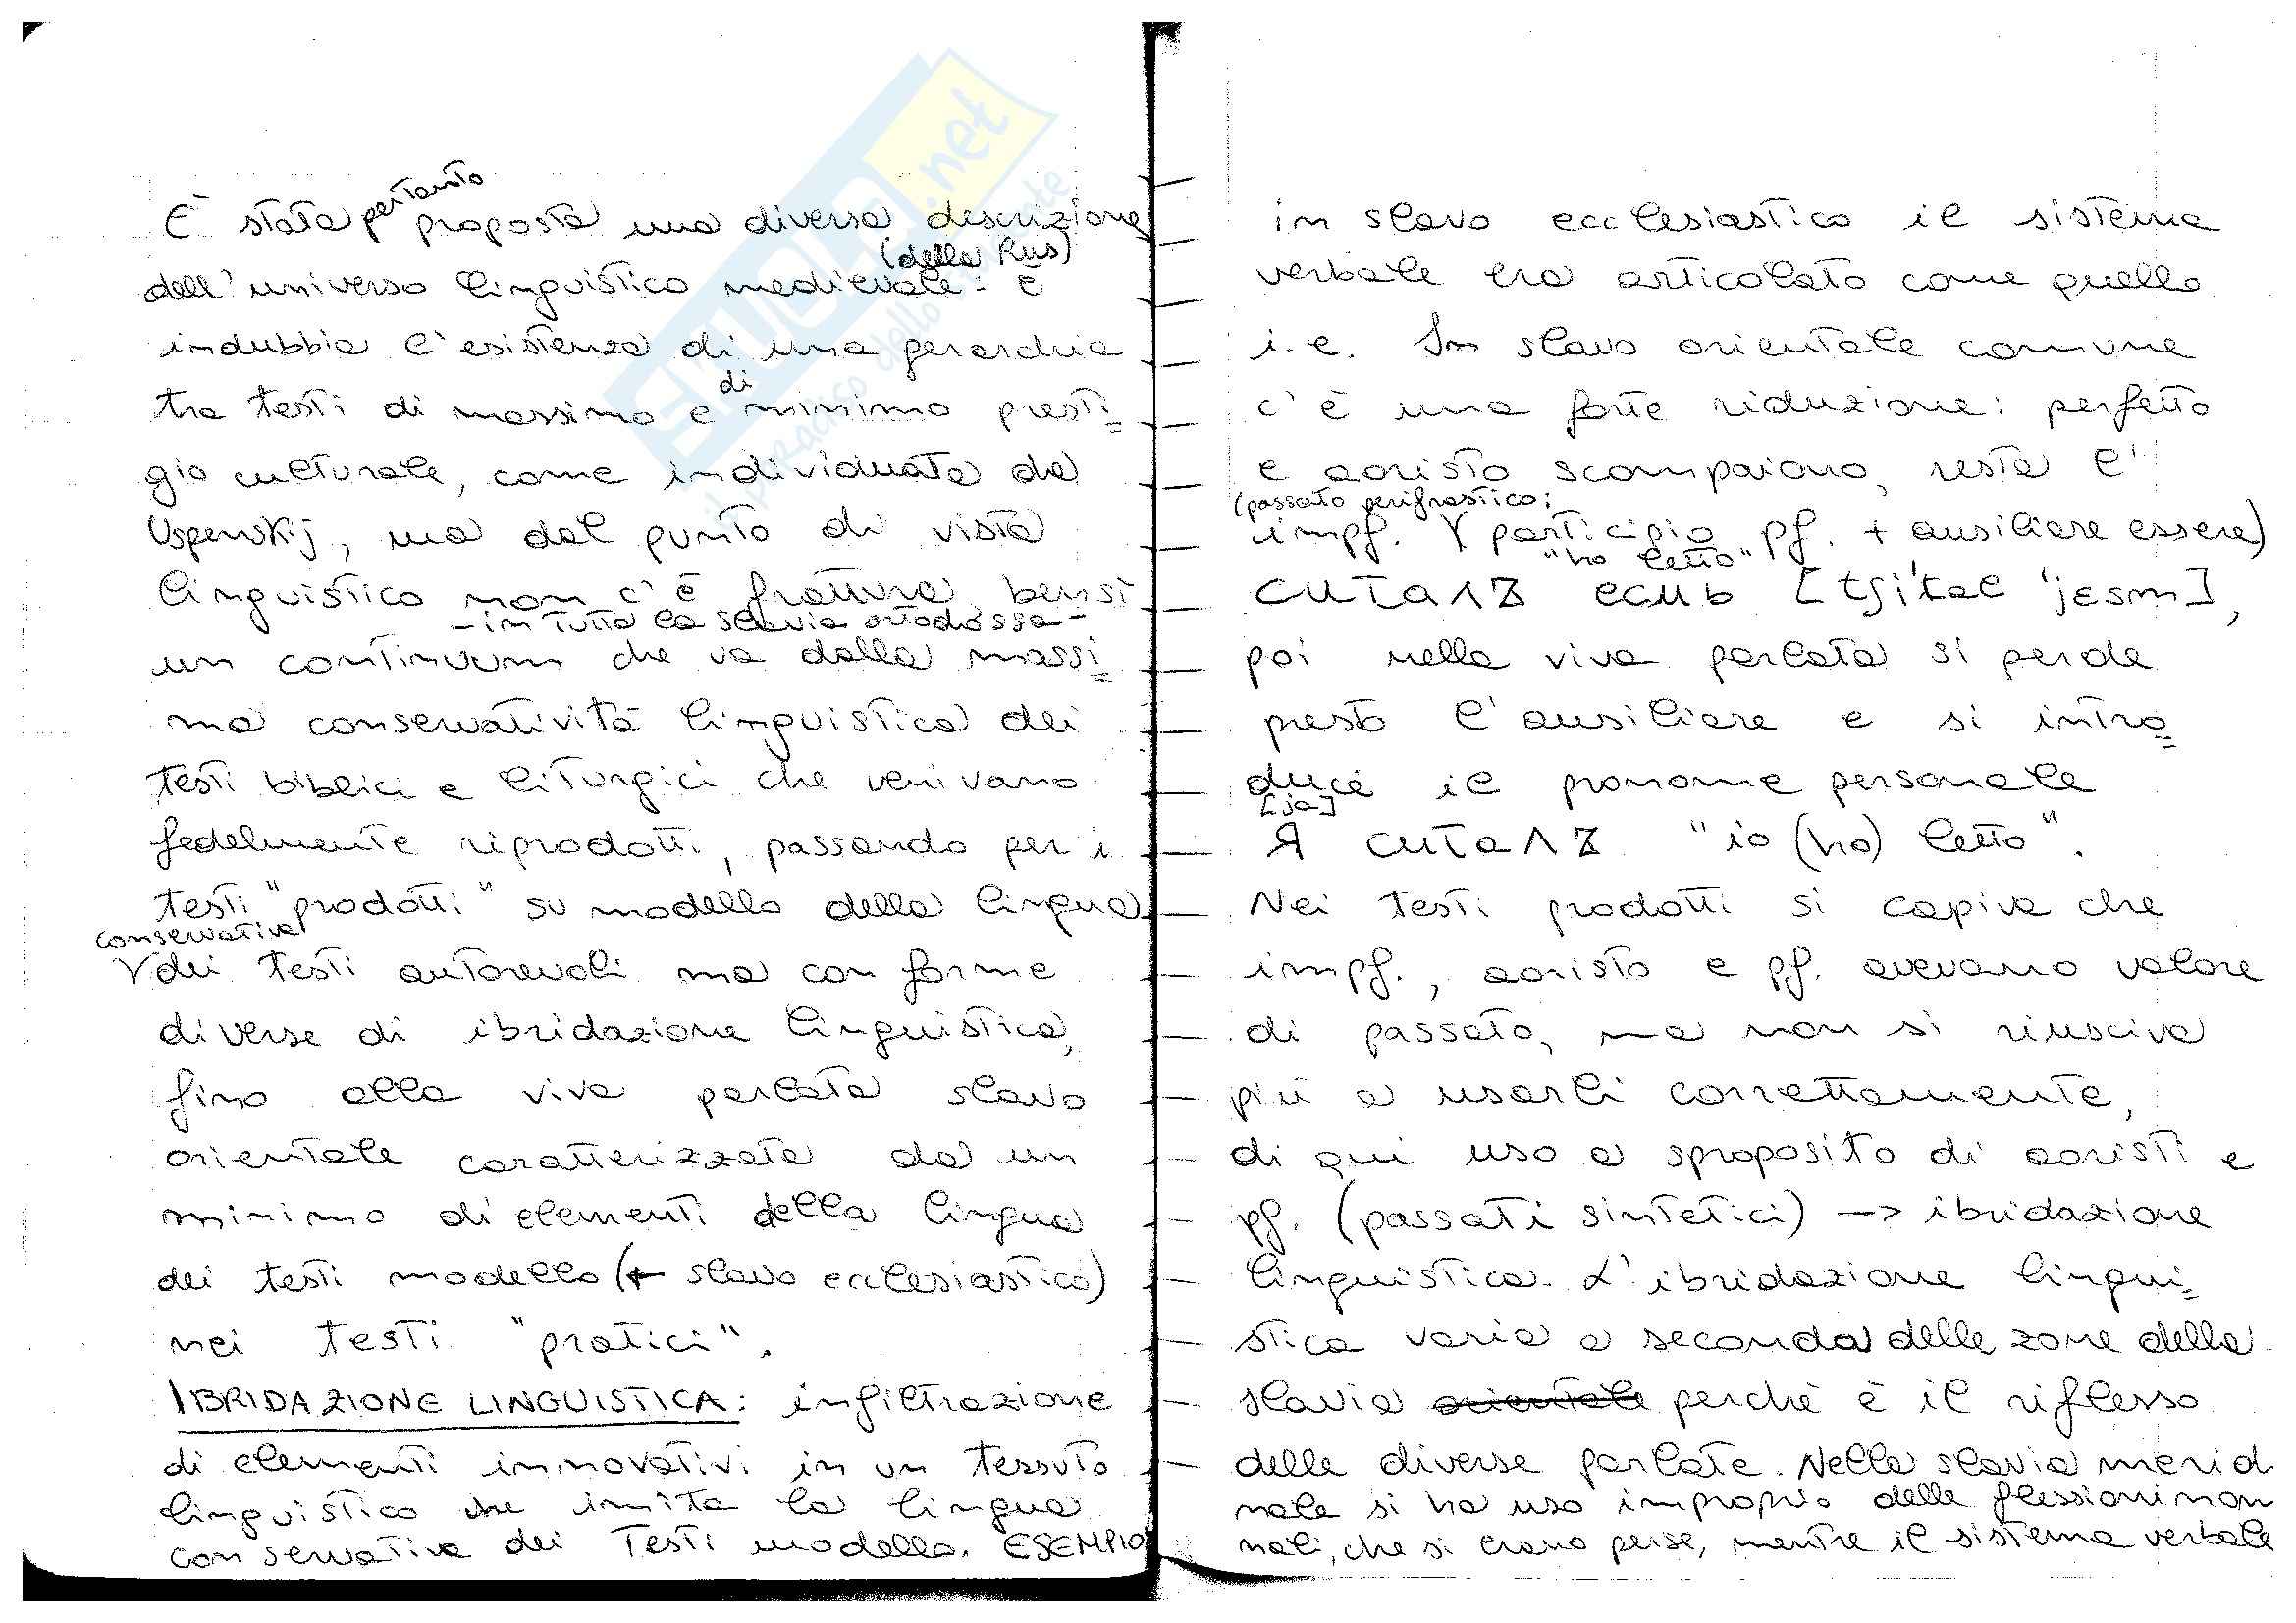 È stata pertanto proposta una diversa descrizione
(della Rus)
dell'universo linguistico medievale: è
indubbia l'esistenza di una gerarchia
tra testi di massimo e di minimo presti=
gio culturale, come individuata da
Uspenskij, ma dal punto di vista
linguistico non c'è frattura, bensì
- in tutta la slavia ortodossa -
un continuum che va dalla massi=
ma conservatività linguistica dei
testi biblici e liturgici che venivano
fedelmente riprodotti, passando per i
testi "prodotti" su modello della lingua
conservativa
V dei testi autorevoli ma con forme
diverse di ibridazione linguistica,
fino alla viva parlata slavo
orientale caratterizzata da un
minimo di elementi della lingua
dei testi modello (← slavo ecclesiastico)
nei testi "pratici".
IBRIDAZIONE LINGUISTICA: infiltrazione
di elementi innovativi in un tessuto
linguistico che imita la lingua
conservativa dei testi modello. ESEMPIO
in slavo ecclesiastico il sistema
verbale era articolato come quello
i.e. In slavo orientale comune
c'è una forte riduzione: perfetto
e aoristo scompaiono, resta l'
(passato perifrastico:
impf. V participio pf. + ausiliare essere)
"ho letto"
читалъ есмь [tʃi'tal 'jesm],
poi nella viva parlata si perde
presto l'ausiliare e si intro=
duce il pronome personale
[ja]
Я читалъ "io (ho) letto".
Nei testi prodotti si capiva che
impf., aoristo e pf. avevano valore
di passato, ma non si riusciva
più a usarli correttamente,
di qui uso a sproposito di aoristi e
pf. (passati sintetici) -> ibridazione
linguistica. L'ibridazione lingui=
stica varia a seconda delle zone della
slavia orientale perché è il riflesso
delle diverse parlate. Nella slavia merid
nale si ha uso improprio delle flessioni nom
nali, che si erano perse, mentre il sistema verbale